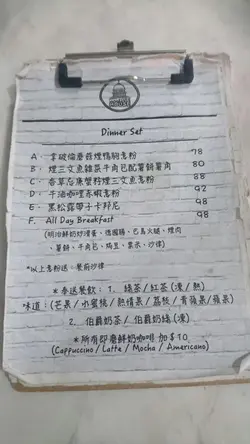 Dinner Set
A. 拿破倫蘑菇煙鴨胸意粉 78
B. 煙三文魚雜菜牛角包配薯餅薯角 80
C. 香草忘廉蟹籽煙三文魚意粉 88
D. 牛油咖哩赤蝦意粉 92
E. 黑松露帶子卡邦尼 98
F. All Day Breakfast 98
(明治鮮奶炒滑蛋、德國腸、巴馬火腿、煙肉
、薯餅、牛角包、焗豆、果占、沙律)
*以上意粉送：餐前沙律
*奉送餐飲： 1. 綠茶/紅茶 (凍/熱)
味道：(芒果/水蜜桃/熱情果/荔枝/青蘋果/蘋果)
2. 伯爵奶茶/伯爵奶綠(凍)
*所有即磨鮮奶咖啡 加$10
(Cappuccino/Latte/Mocha/Americano)